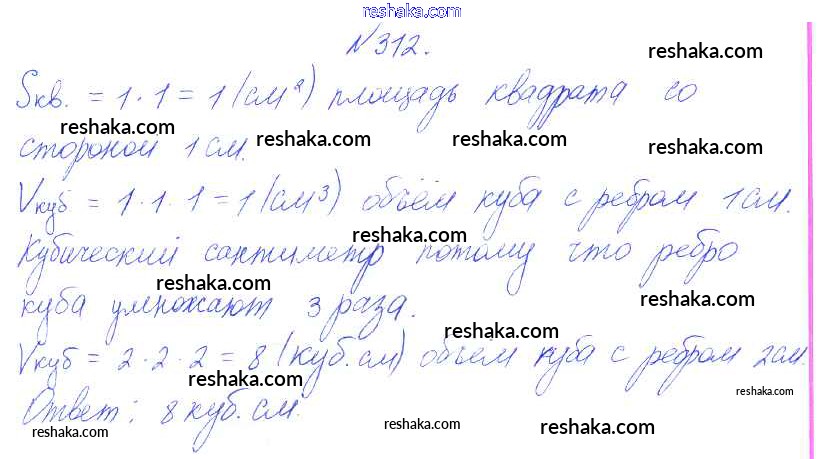 reshaka.com
N 312.
reshaka.com
Sкв. = 1 · 1 = 1 (см²) площадь квадрата со
reshaka.com reshaka.com reshaka.com reshaka.com
стороной 1 см.
Vкуб = 1 · 1 · 1 = 1 (см³) объём куба с ребром 1 см.
reshaka.com
Кубический сантиметр потому что ребро
reshaka.com reshaka.com
куба умножают 3 раза.
reshaka.com
Vкуб = 2 · 2 · 2 = 8 (куб. см) объём куба с ребром 2 см.
reshaka.com reshaka.com
Ответ: 8 куб. см.
reshaka.com reshaka.com reshaka.com